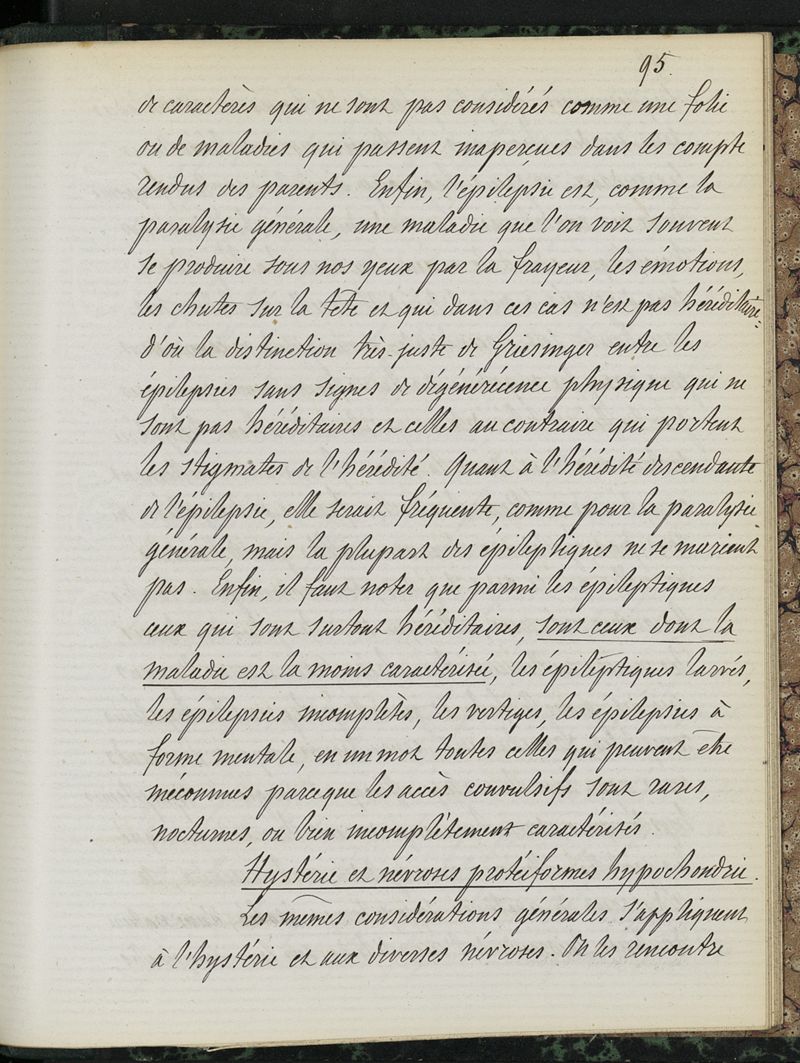 95.
de caractères qui ne sont pas considérés comme une folie
ou de maladies qui passent inaperçues dans les compte
rendus des parents. Enfin, l'épilepsie est, comme la
paralysie générale, une maladie que l'on voit souvent
se produire sous nos yeux par la frayeur, les émotions,
les chutes sur la tête et qui dans ces cas n'est pas héréditaire:
d'où la distinction très-juste de Griesinger entre les
épilepsies sans signes de dégénérécence physique qui ne
sont pas héréditaires et celles au contraire qui portent
les stigmates de l'hérédité. Quant à l'hérédité descendante
de l'épilepsie, elle serait fréquente, comme pour la paralysie
générale, mais la plupart des épileptiques ne se marient
pas. Enfin, il faut noter que parmi les épileptiques
ceux qui sont surtout héréditaires, sont ceux dont la
maladie est la moins caractérisée, les épileptiques larvés,
les épilepsies incomplètes, les vertiges, les épilepsies à
forme mentale, en un mot toutes celles qui peuvent être
méconnues parceque les accès convulsifs sont rares,
nocturnes, ou bien incomplètement caractérisés.
Hystérie et névroses protéiformes hypochondrie.
Les mêmes considérations générales s'appliquent
à l'hystérie et aux diverses névroses. On les rencontre